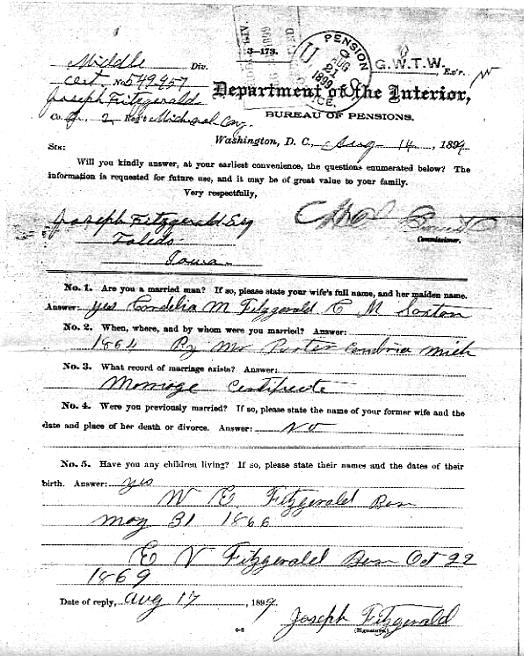 3-173.
Middle Div.
Cert. No. 549957
Joseph Fitzgerald
Co. 2 Michigan Cav.
PENSION
U. S.
AUG 21 1899
OFFICE.
G. W. T. W. Ex'r.
Department of the Interior,
BUREAU OF PENSIONS.
Washington, D. C., Aug 14, 1899.
SIR:
Will you kindly answer, at your earliest convenience, the questions enumerated below? The
information is requested for future use, and it may be of great value to your family.
Very respectfully,
Joseph Fitzgerald Esq
Toledo
Iowa
Commissioner.
No. 1. Are you a married man? If so, please state your wife's full name, and her maiden name.
Answer: yes Cordelia M Fitzgerald C M Saxton
No. 2. When, where, and by whom were you married? Answer:
1864 By Mr Porter Cambria Mich
No. 3. What record of marriage exists? Answer:
Marriage Certificate
No. 4. Were you previously married? If so, please state the name of your former wife and the
date and place of her death or divorce. Answer: No
No. 5. Have you any children living? If so, please state their names and the dates of their
birth. Answer: yes
W E Fitzgerald Born
may 31 1866
E V Fitzgerald Born Oct 22
1869
Date of reply, Aug 17, 1899.
Joseph Fitzgerald
(Signature.)